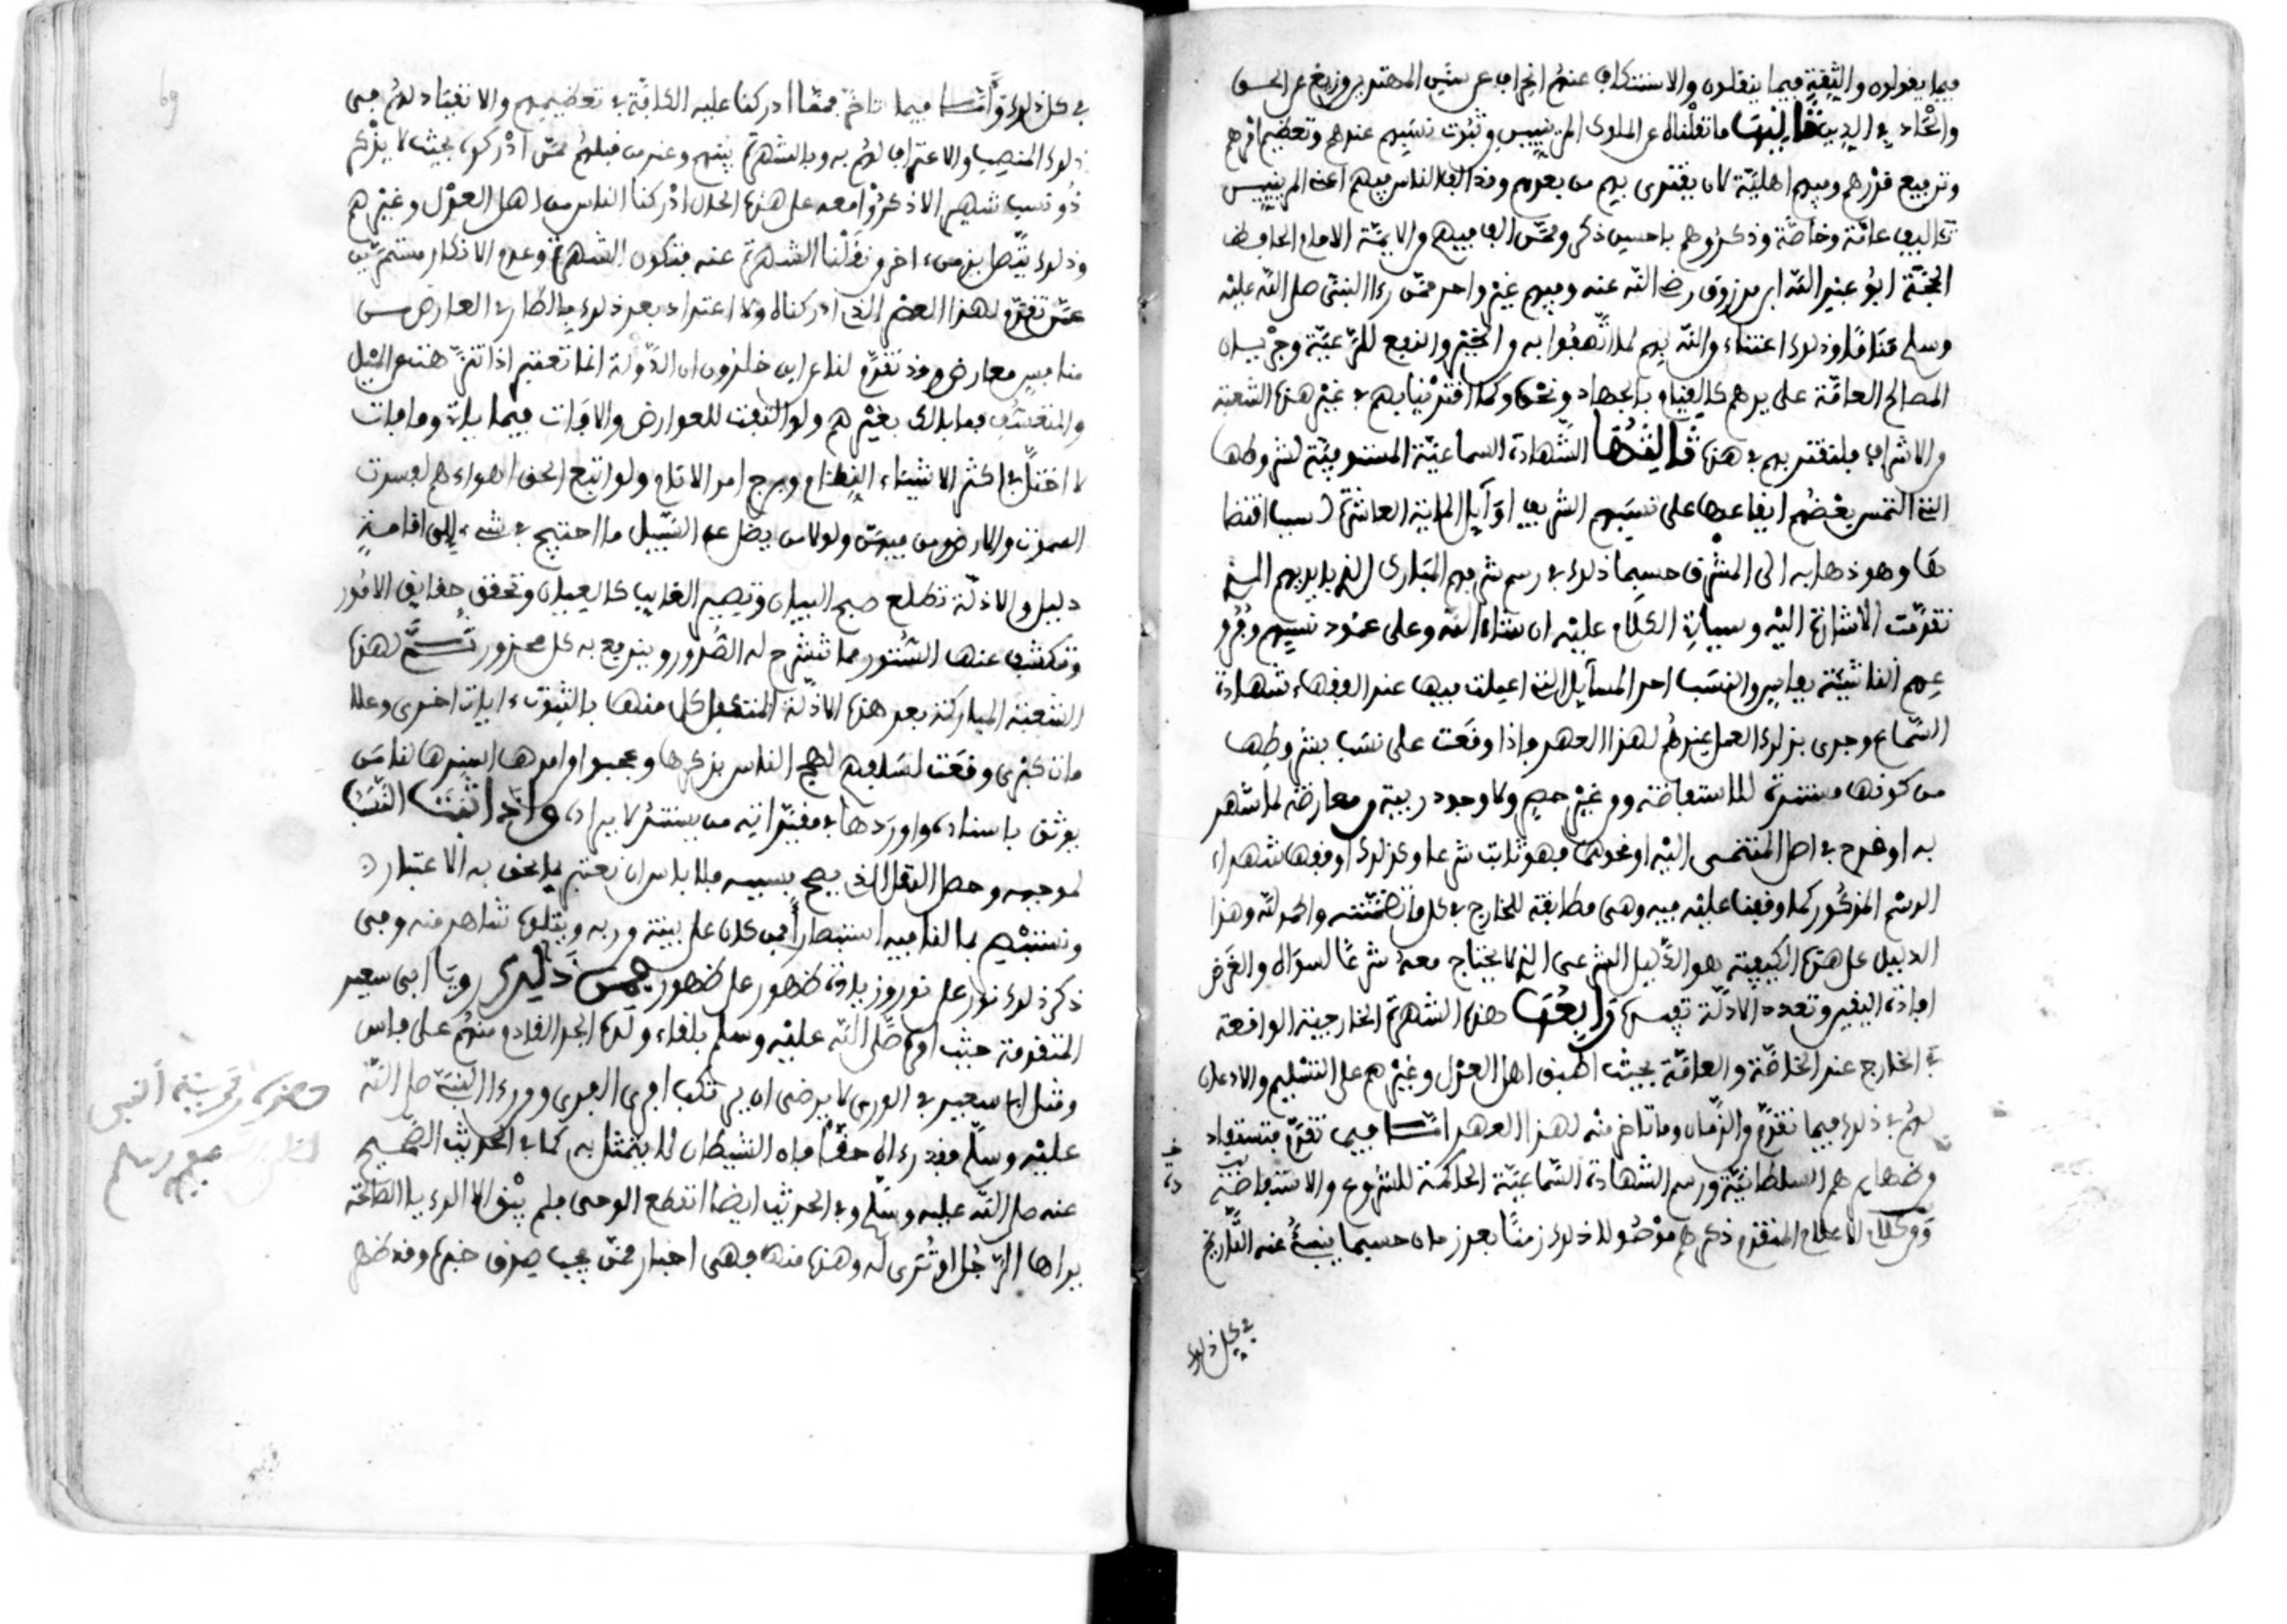 فيما يقولونه والثقة فيما ينقلون والاستنكاف عنهم انحراف عن سنن المهتدين وزيغ عن الحق
والحاد في الدين ثانيها ما نقلناه عن الملوك المرينيين وثبوت نسبهم عندهم وتعظيم امرهم
وترفيع قدرهم وفيهم اهلية لان يقتدى بهم من بعدهم وقد الف الناس فيهم اعنى المرينيين
تئاليف عامة وخاصة وذكروهم باحسن ذكر وممن الف فيهم من الايمة الامام الحافظ
الحجة ابو عبد الله ابن مرزوق رضي الله عنه وفيهم غير واحد ممن رءا النبي صلى الله عليه
وسلم مناما وذلك اعتناء من الله بهم لما اتصفوا به من الخير والنفع للرعية وجريان
المصالح العامة على يدهم كالقيام بالجهاد ونحوه وكما اقتدينا بهم في غير هذه الشعبة
من الاشراف فلنقتد بهم في هذه ثالثها الشهادة السماعية المستوفية لشروطها
التي التمس بعضهم ايقاعها على نسبهم الشريف اوايل المائة العاشرة لسبب اقتضا
ها وهو ذهابه الى المشرق حسبما ذلك في رسم شرفهم المبارك الذي بايديهم الذي
تقدمت الاشارة اليه وسياتي الكلام عليه ان شاء الله وعلى عمود نسبهم وفرو
عهم الناشئة بفاس والنسب احد المسائل التي اعملت فيها عند الفقهاء شهادة
السماع وجرى بذلك العمل عندهم لهذا العهد واذا وقعت على نسب بشروطها
من كونها مستندة للاستفاضة من غير حصر ولا وجود ريبة ومعارضة لما شهر
به او قدح في اصل المنتمى اليه او نحوهما فهو ثابت شرعا وكذلك اوقعها شهداء
الرسم المذكور كما وقفنا عليه فيه وهي مطابقة للخارج في كل ما تضمنته والحمد لله وهذا
الدليل على هذه الكيفية هو الدليل الشرعي الذي لا يحتاج معه شرعا لسواه والغرض
افادة اليقين وتعدد الادلة تفيده رابعها هذه الشهرة الخارجية الواقعة
في الخارج عند الخاصة والعامة بحيث اطبق اهل العدل وغيرهم على التسليم والاذعان
لهم في ذلك فيما تقدم من الزمان وما تاخر منه لهذا العهد اما فيما تقدم فتستفاد
من ظهايرهم السلطانية ورسم الشهادة السماعية الحاكمة للشيوع والاستفاضة
ومن كلام الاعلام المتقدم ذكرهم موصولا ذلك زمنا بعد زمان حسبما ينبئ عنه التاريخ
في كل ذلك
في كل ذلك واما فيما تاخر فمما ادركنا عليه الكافة في تعظيمهم والانقياد لهم من
ذلك المنصب والاعتراف لهم به وبالشهرة بينهم وعند من قبلهم ممن ادركوه بحيث لا يذكر
ذو نسب شهير الا ذكروا معه على هذه الحال ادركنا الناس من اهل العدل وغيرهم
وذلك يتصل بزمن اخر ونقلنا الشهرة عنه فتكون الشهرة وعدم الانكار مستمرين
عمن تقدم لهذا العصر الذي ادركناه ولا اعتداد بعد ذلك بالطارئ العارض من
منافس معارض وقد تقدم لنا عن ابن خلدون ان الدولة انما تعتبر اذا تنزهت عن الميل
والتعسف فما بالك بغيرهم ولو التفت للعوارض والافات فيما ياتي وما فات
لاختل في اكثر الاشياء النظام ومرج امر الانام ولو اتبع الحق اهواءهم لفسدت
السموت والارض ومن فيهن ولولا من يضل عن السبيل ما احتيج في شيء الى اقامة
دليل والادلة تطلع صبح البيان وتصير الغايب كالعيان وتحقق حقايق الامور
وتكشف عنها الستور مما تنشرح له الصدور ويندفع به كل محذور ثم لهذه
الشعبة المباركة بعد هذه الادلة المتكفل كل منها بالثبوت ءايات اخرى وعلا
مات كبرى وقعت لسلفهم لهج الناس بذكرها وعجبوا من امرها اسندها لنا من
يوثق باسناده واوردها في مقيداته من يستند لايراده واذا ثبت النسب
لموجبه وحصل النقل الذي يصح بسببه فلا باس ان نعتبر ما يحق به الاعتبار
ونستبصر بما لنا فيه استبصارا فمن كان على بينة من ربه ويتلوه شاهد منه ومن
ذكر ذلك نور على نور وزيادة ظهور على ظهور فمن ذلك رويا ابي سعيد
المتقدمة حيث امره صلى الله عليه وسلم بلقاء ولده الجد القادم منهم على فاس
ومثل ابي سعيد في الورع لا يرضى ان يرتكب افرى الفرى ومن رءا النبي صلى الله
عليه وسلم فقد رءاه حقا فان الشيطان لا يتمثل به كما في الحديث الصحيح
عنه صلى الله عليه وسلم وفي الحديث ايضا انقطع الوحي فلم يبق الا الرءيا الصالحة
يراها الرجل او ترى له وهذه منها فهي اخبار ممن يجب صدق خبره وقد ظهر